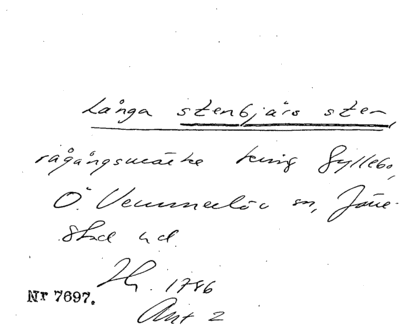 Långa stenbjärs sten,
rågångsmärke kring Gyllebo,
Ö. Vemmerlöv sn, Järre-
stad hd.
Hh. 1786
Nr 7697.
Akt 2